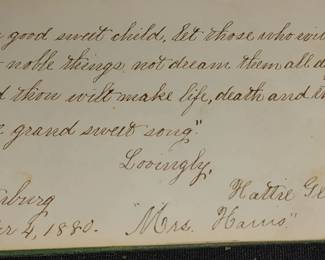 good sweet child, let those who wi
noble things, not dream them all d
d thou wilt make life, death and th
grand sweet song."
Lovingly,
burg Hattie Ge
er 4, 1880. "Mrs. Harris."